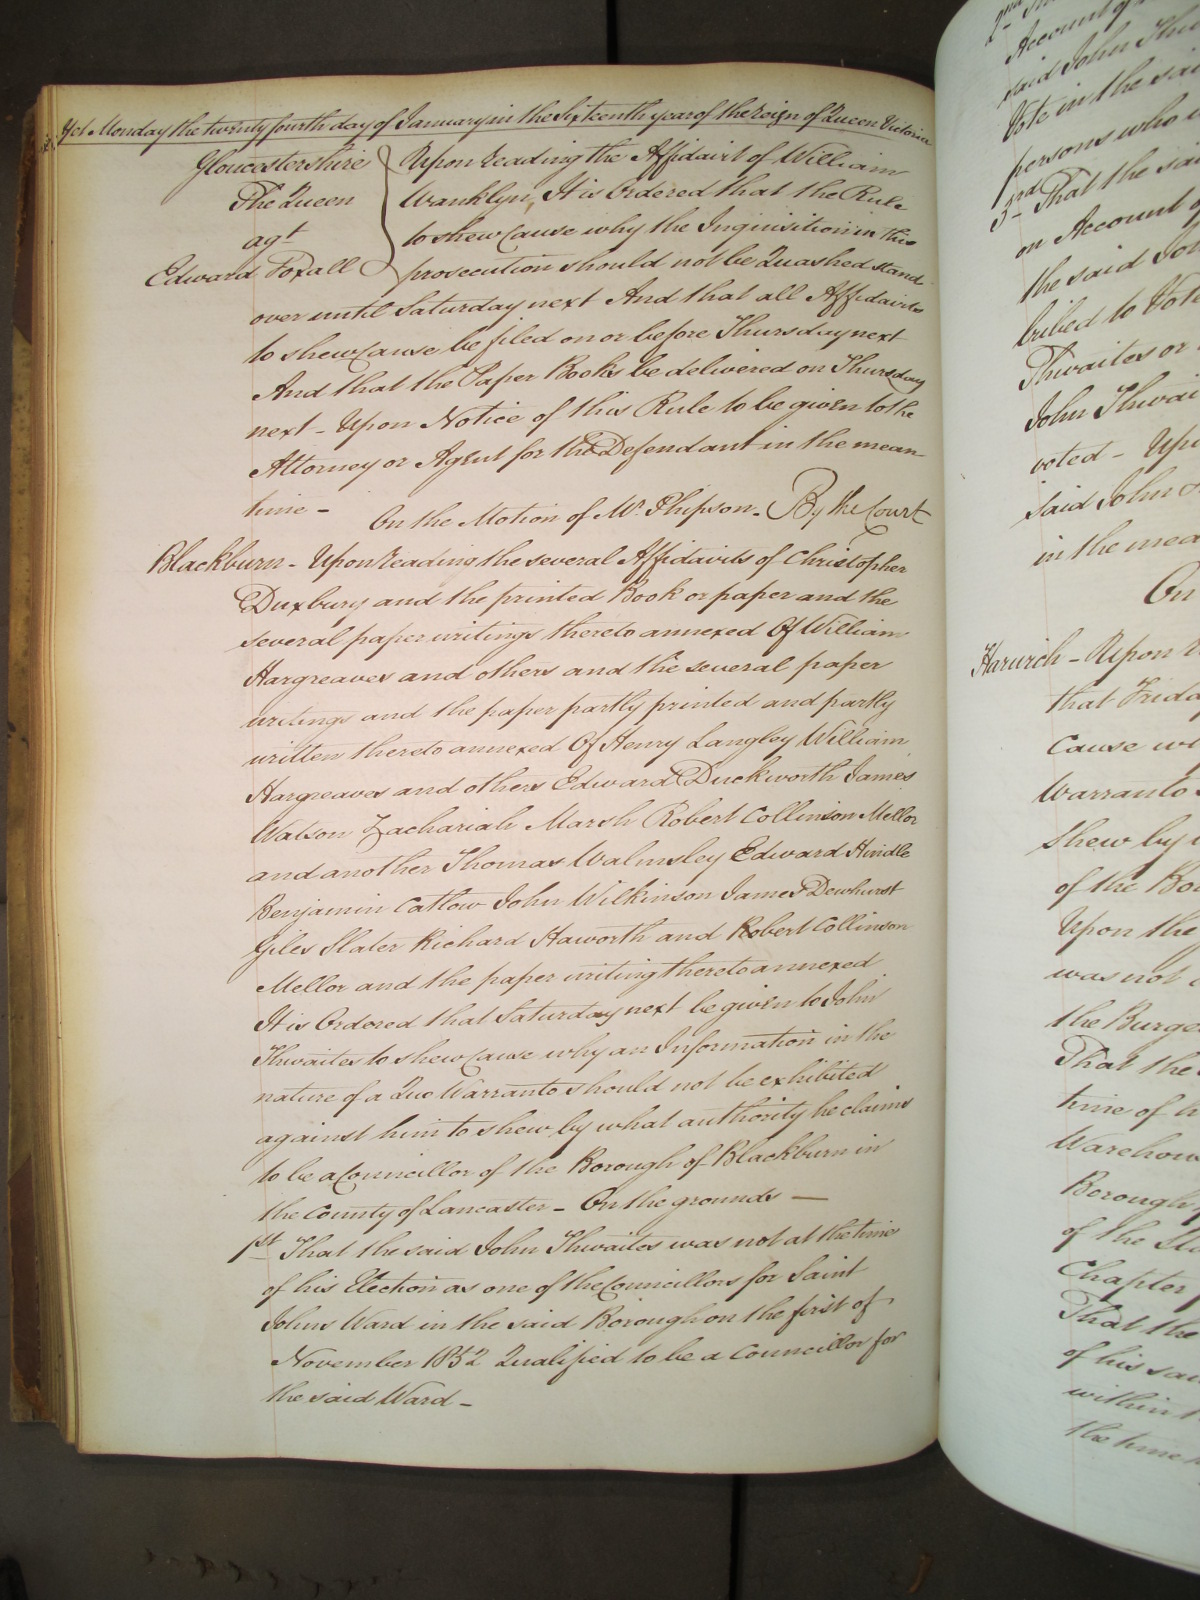 Yet Monday the twenty fourth day of January in the Sixteenth year of the Reign of Queen Victoria
Gloucestershire
The Queen
agt
Edward Foxall
Upon reading the Affidavit of William
Wanklyn, It is Ordered that the Rule
to shew Cause why the Inquisition in this
prosecution should not be Quashed stand
over until Saturday next And that all Affidavits
to shew Cause be filed on or before Thursday next
And that the Paper Books be delivered on Thursday
next - Upon Notice of this Rule to be given to the
Attorney or Agent for the Defendant in the mean
time -
On the Motion of Mr. Phipson. By the Court
Blackburn - Upon reading the several Affidavits of Christopher
Duxbury and the printed Book or paper and the
several paper writings thereto annexed Of William
Hargreaves and others and the several paper
writings and the paper partly printed and partly
written thereto annexed Of Henry Langley William
Hargreaves and others Edward Duckworth James
Watson Zachariah Marsh Robert Collinson Mellor
and another Thomas Walmsley Edward Hindle
Benjamin Catlow John Wilkinson James Dewhurst
Giles Slater Richard Haworth and Robert Collinson
Mellor and the paper writing thereto annexed
It is Ordered that Saturday next be given to John
Thwaites to shew Cause why an Information in the
nature of a Quo Warranto should not be exhibited
against him to shew by what authority he claims
to be a Councillor of the Borough of Blackburn in
the County of Lancaster - On the grounds —
1st That the said John Thwaites was not at the time
of his Election as one of the Councillors for Saint
Johns Ward in the said Borough on the first of
November 1852 Qualified to be a Councillor for
the said Ward -
2nd
Account of
said John
Vote in the said
persons who
3rd That the said
on Account of
the said John
bribed to Vote
Thwaites or
John
voted - Upon
said John
in the mean
On
Harwich - Upon
that Friday
Cause
Warranto
shew by
of the
Upon the
was not
the
That the
time of
Borough
of the
Chapter
That the
of his said
within
the time